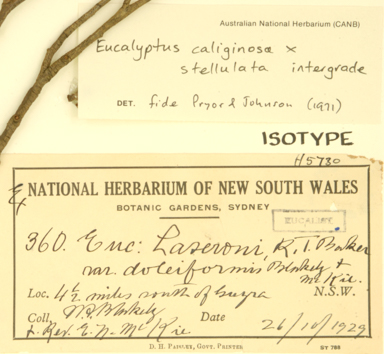 Australian National Herbarium (CANB)
Eucalyptus caliginosa x
stellulata intergrade
DET. fide Pryor & Johnson (1971)
ISOTYPE
H5730
Ex
NATIONAL HERBARIUM OF NEW SOUTH WALES
BOTANIC GARDENS, SYDNEY
EUCALYPT
360. Euc: Laseroni, R. T. Baker
var. doleiformis Blakely &
McKie.
Loc. 4½ miles south of Guyra N.S.W.
Coll. W. F. Blakely
& Rev. E. N. McKie Date 26/10/1929
D. H. PAISLEY, GOVT. PRINTER
SY 788